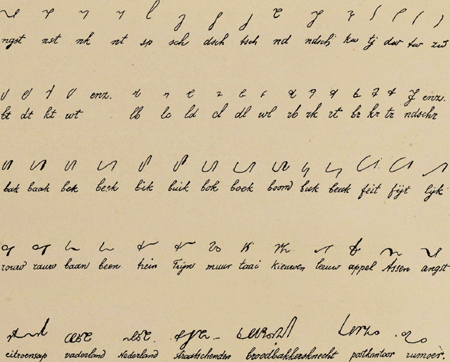 ngst nst nk nt sp sch dsch tsch nd ndsch kw tj dw tw zw
bt dt kt wt enz. lb lc ld cl dl wl rb rk rt br kr tr ndschr enz.
bak baak bek beek bik buik bok boek boord buk beuk feit fijt lijk
rouw rauw baan been trein Trijn muur taai kieuwen leeuw appel Assen angst
citroensap vaderland Nederland broodbakkersknecht postkantoor rumoer.